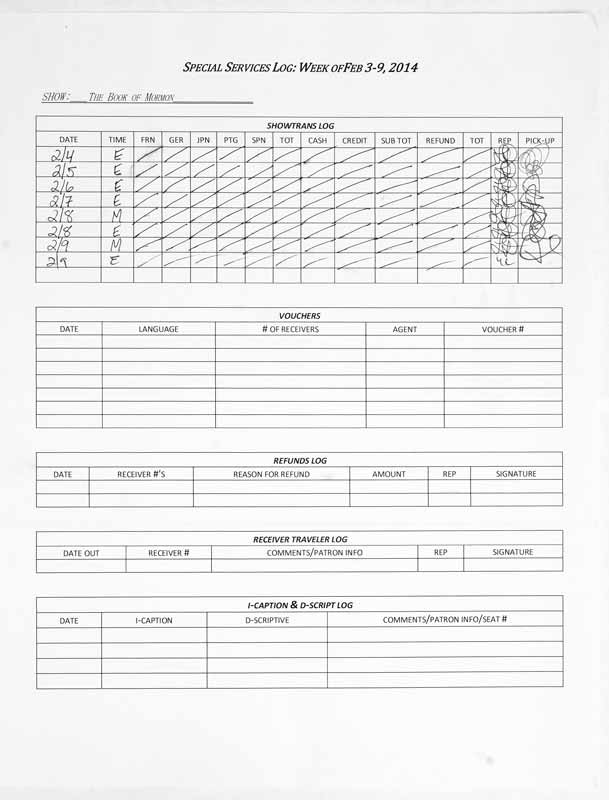 SPECIAL SERVICES LOG: WEEK OFFEB 3-9, 2014
SHOW:___THE BOOK OF MORMON______________
SHOWTRANS LOG
DATE TIME FRN GER JPN PTG SPN TOT CASH CREDIT SUB TOT REFUND TOT REP PICK-UP
2/4 E
2/5 E
2/6 E
2/7 E
2/8 M
2/8 E
2/9 M
2/9 E
VOUCHERS
DATE LANGUAGE # OF RECEIVERS AGENT VOUCHER #
REFUNDS LOG
DATE RECEIVER #'S REASON FOR REFUND AMOUNT REP SIGNATURE
RECEIVER TRAVELER LOG
DATE OUT RECEIVER # COMMENTS/PATRON INFO REP SIGNATURE
I-CAPTION & D-SCRIPT LOG
DATE I-CAPTION D-SCRIPTIVE COMMENTS/PATRON INFO/SEAT #